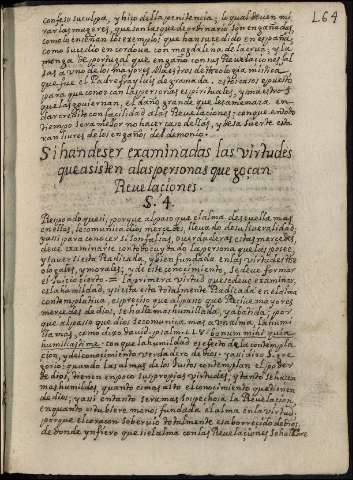 L64
confeso su culpa, y hizo de ella penitencia; lo qual deuen mi
rar las mugeres, que son las que de ordinario son engañadas
como lo enseñan los exemplos; que han sucedido en españa,
como sucedio en cordoua con magdalena de la cruz; y la
monga de portugal que engaño con sus Reuelaciones fal
sas a vno de los mayores Maestros de theologia mistica,
que fue el Padre fray luis de granada. esto se a puesto
para que conozcan las personas espirituales, y maestros q
que las gouiernan, el daño grande que les amenaza en
dar credito con facilidad a las Reuelaciones; conque en todo
tiempo sera mejor no hacer caso de llas, y desta suerte esta
ran libres de los engaños del demonio.
Si han de ser examinadas las virtudes
que asisten a las personas que goçan
Reuelaciones.
S. 4.
Respondo que si; porque al paso que el alma
en ellas, le comunica dios mercedes, lleuado de su liberalidad;
y asi para conocer si son falsas, o verdaderas estas mercedes,
deue examinarse con todo cuydado la persona que las posee,
y saver si esta Radicada, y bien fundada en las virtudes the
ologales, y morales; y de este conocimiento, se deue formar
el Juicio cierto. la primera virtud que se deue examinar
es la humildad, y si esta esta totalmente Radicada en el alma
contemplatiua, es preciso que al paso que Reciue mayores
mercedes de dios, se halla mas humillada, y abatida; por
que al paso que dios se comunica mas a vn alma, la humi
lla mas, como dixo Dauid. psalm. bonum mihi quia
humiliasti me: con que la humildad es efecto de la contempla
cion, y del conocimiento verdadero de dios. y asi dixo S. gre
gorio: quando las almas de los Justos contemplan el poder
de dios, tienen en poco sus propias virtudes, y tanto se hacen
mas humildes quanto es mas alto el conocimiento que tienen
de dios; y asi en tanto sera mas sospechosa la Reuelacion
en quanto estubiere menos fundada el alma en la virtud;
porque el coraçon soberuio totalmente es aborrecido de dios
de donde ynfiero que si el alma con las Reuelaciones se hallare